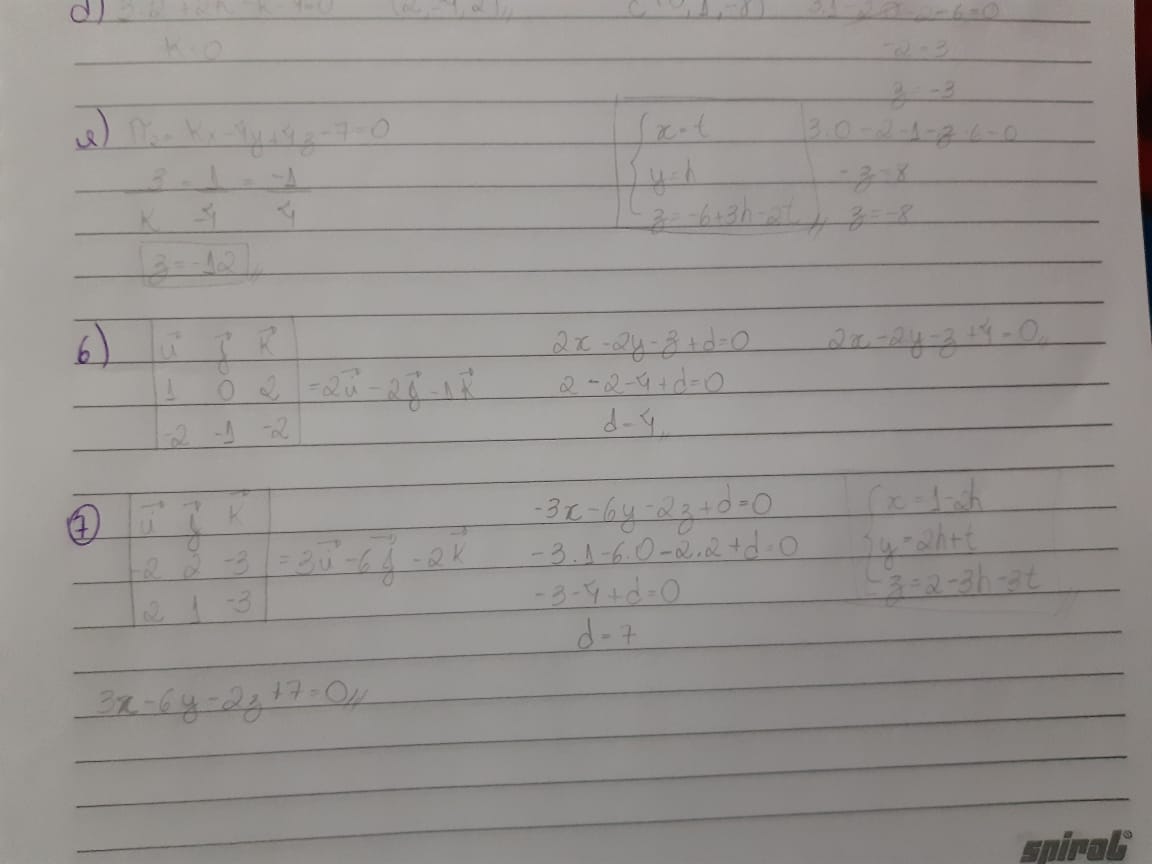 d)
K=0
-2=3
z=-3
e) π₂= Kx-4y+4z-7=0
3/K = 1/-4 = -1/4
z=-12
x=t
y=h
z=-6+3h-2t
3.0-2-1-z-6=0
-z=8
z=-8
6)
u⃗ j⃗ k⃗
1 0 2 =2u⃗-2j⃗-1k⃗
-2 -1 -2
2x-2y-z+d=0
2-2-4+d=0
d=4
2x-2y-z+4=0
7
u⃗ j⃗ k⃗
-2 2 -3 =3u⃗-6j⃗-2k⃗
2 1 -3
-3x-6y-2z+d=0
-3.1-6.0-2.2+d=0
-3-4+d=0
d=7
x=1-2h
y=2h+t
z=2-3h-3t
3x-6y-2z+7=0
spiral